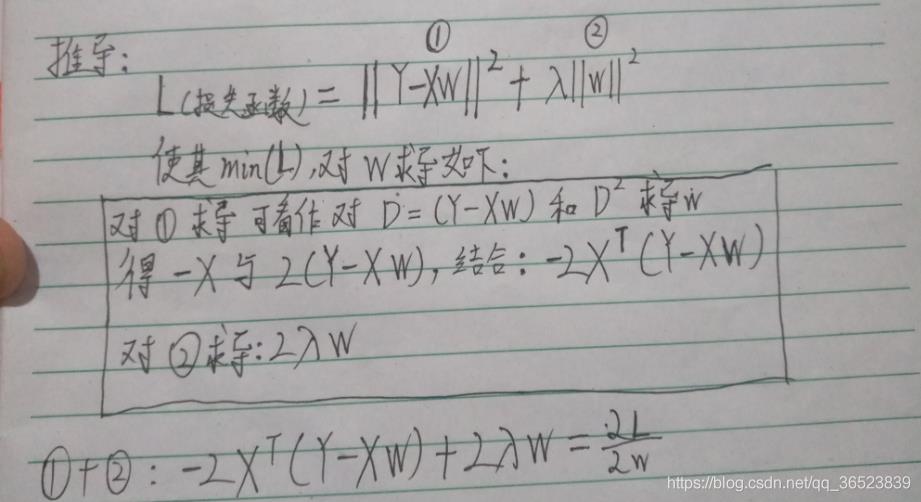 ① ②
推导:
L(损失函数) = ||Y-XW||² + λ||W||²
使其min(L),对W求导如下:
对①求导可看作对 D=(Y-XW) 和 D² 求导w
得 -X 与 2(Y-XW), 结合: -2Xᵀ(Y-XW)
对②求导: 2λW
①+②: -2Xᵀ(Y-XW)+2λW = ∂L/∂w
https://blog.csdn.net/qq_36523839